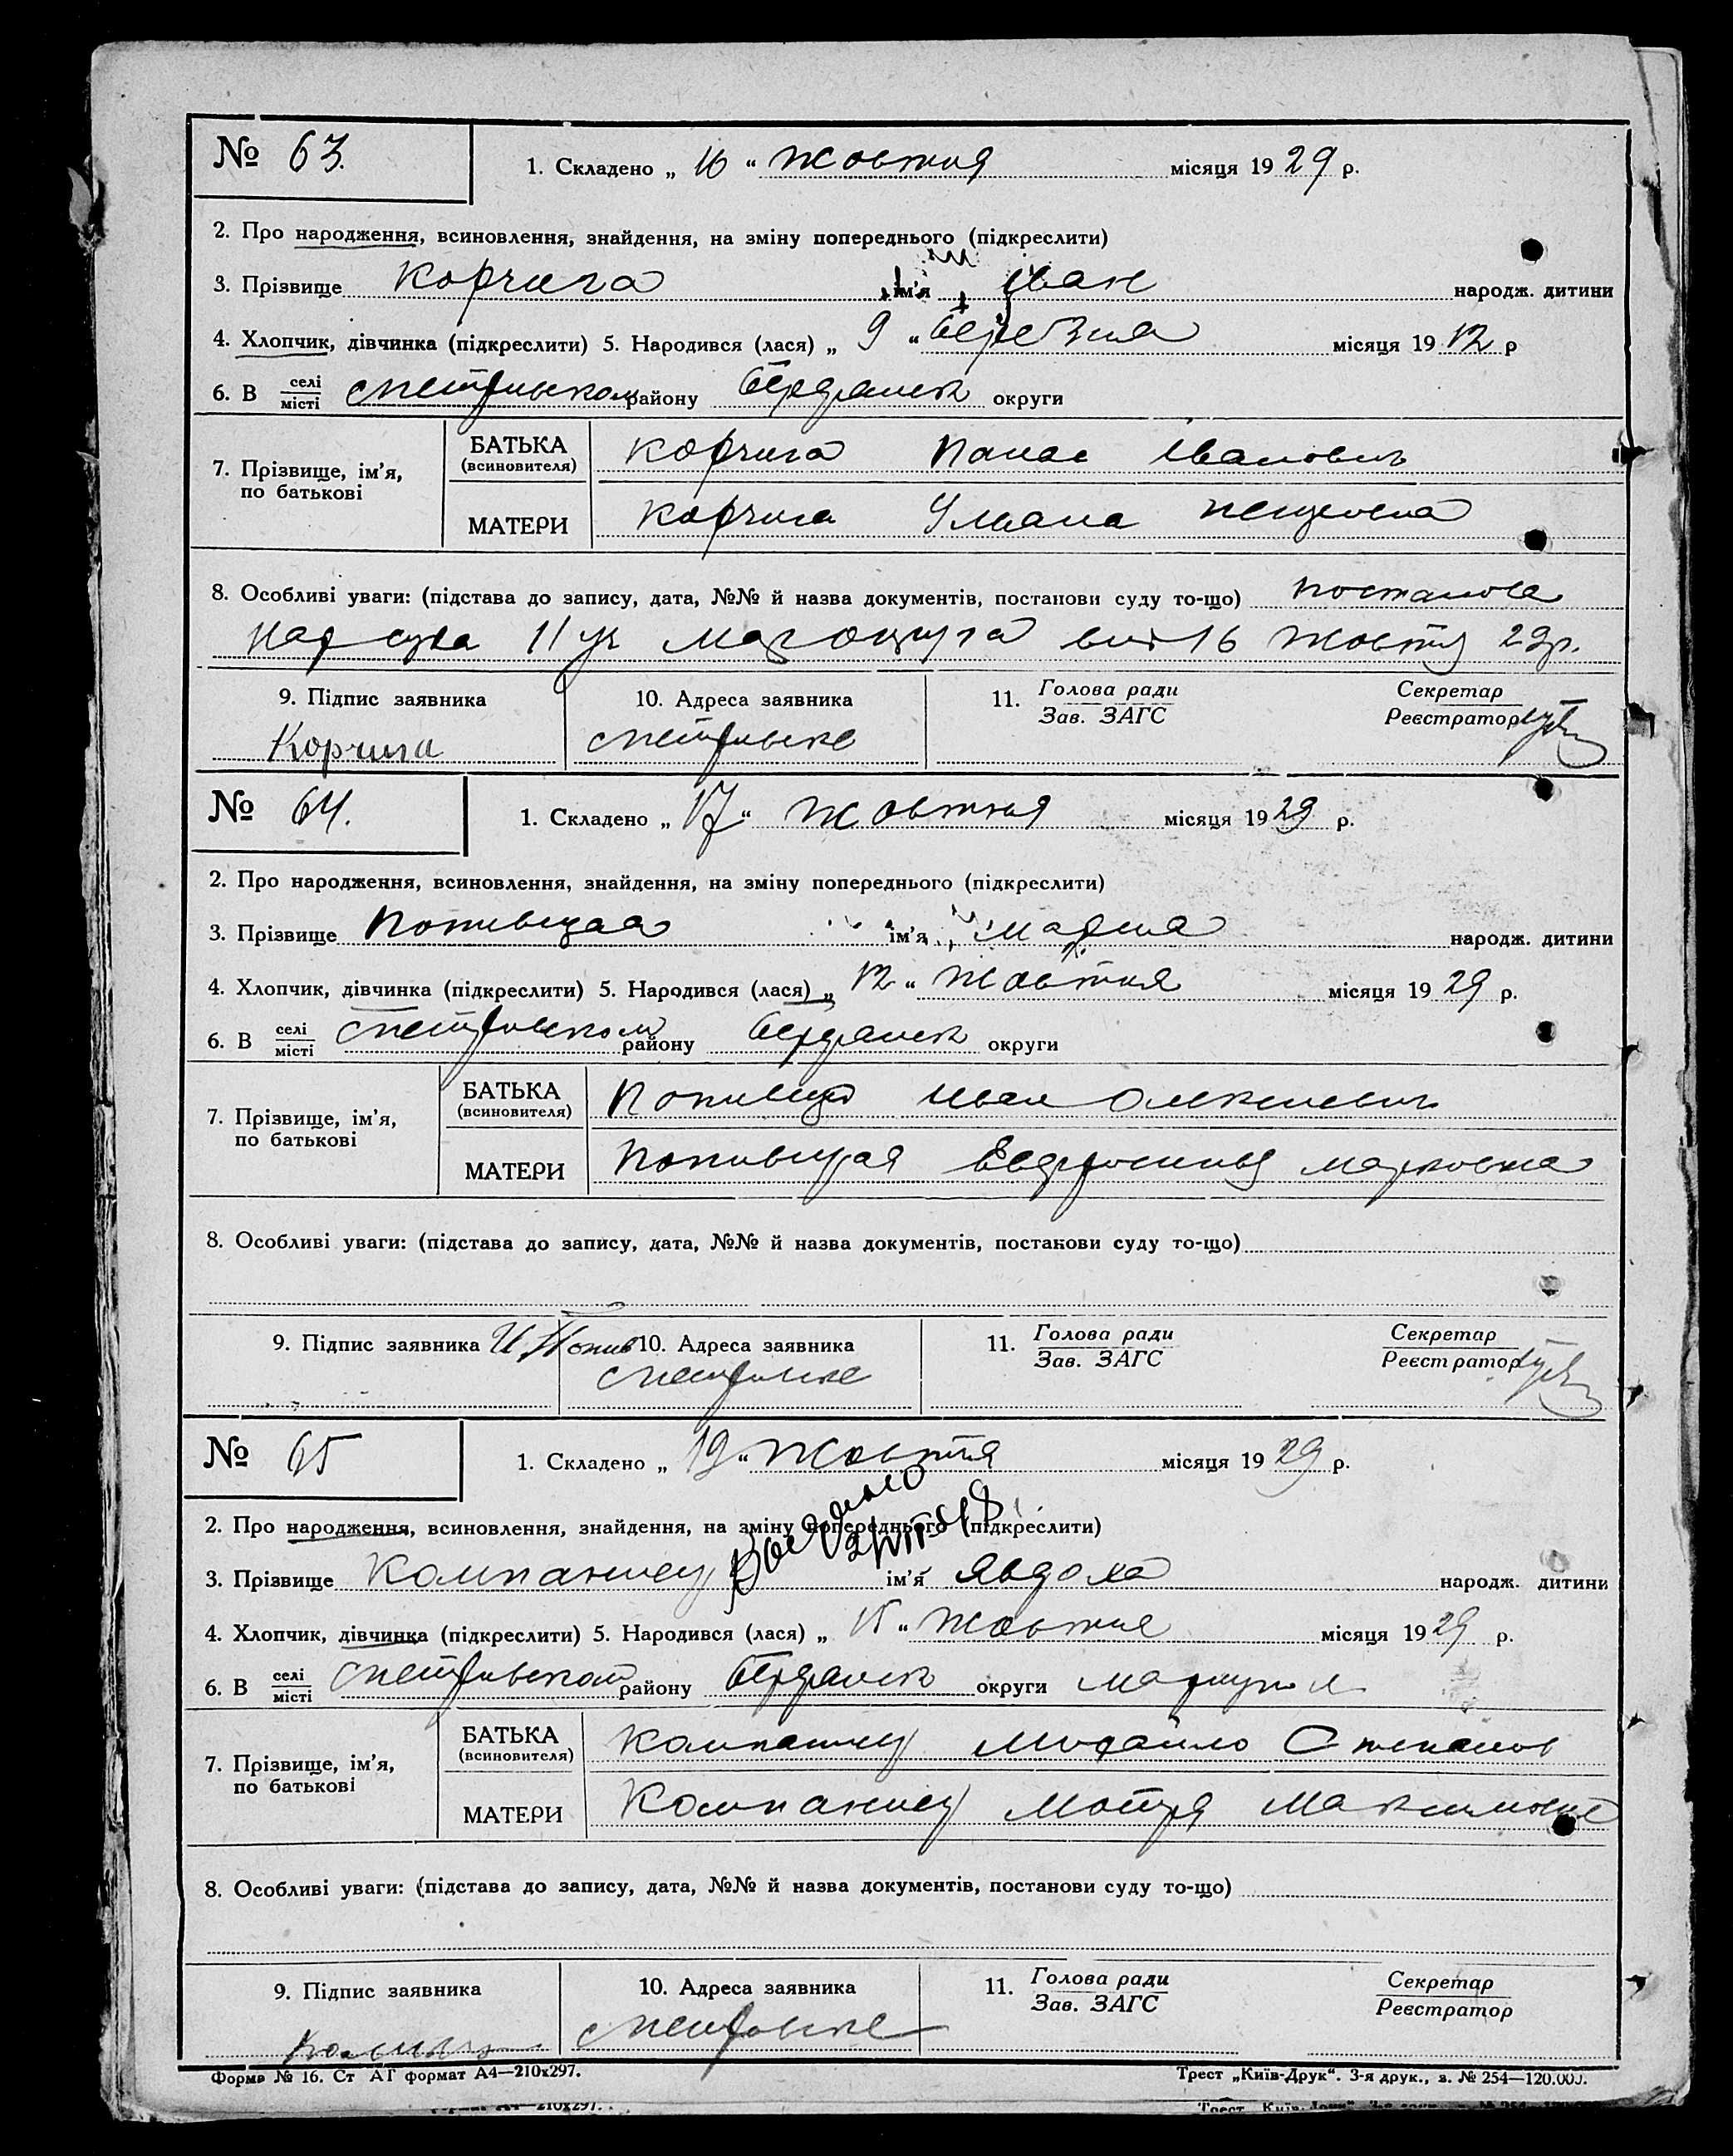 № 63. 1. Складено „ 16 “ жовтня місяця 1929 р.
2. Про народження, всиновлення, знайдення, на зміну попереднього (підкреслити)
3. Прізвище Корчига ім'я Іван народж. дитини
4. Хлопчик, дівчинка (підкреслити) 5. Народився (лася) „ 9 “ березня місяця 1912 р
6. В селі місті району Бердянск округи
7. Прізвище, ім'я, по батькові
БАТЬКА (всиновителя) Корчига Панас Іванович
МАТЕРИ Корчига Уляна
8. Особливі уваги: (підстава до запису, дата, №№ й назва документів, постанови суду то-що) постанова
Нарсуда 11 уч від 16 жовтня 29р.
9. Підпис заявника 10. Адреса заявника 11. Голова ради Секретар
Зав. ЗАГС Реєстратор
Корчига спетровське
№ 64. 1. Складено „ 17 “ жовтня місяця 1929 р.
2. Про народження, всиновлення, знайдення, на зміну попереднього (підкреслити)
3. Прізвище ім'я Мария народж. дитини
4. Хлопчик, дівчинка (підкреслити) 5. Народився (лася) „ 12 “ жовтня місяця 1929 р.
6. В селі місті району Бердянск округи
7. Прізвище, ім'я, по батькові
БАТЬКА (всиновителя) Иван Олексиевич
МАТЕРИ Марковна
8. Особливі уваги: (підстава до запису, дата, №№ й назва документів, постанови суду то-що)
9. Підпис заявника 10. Адреса заявника 11. Голова ради Секретар
Зав. ЗАГС Реєстратор
спетровське
№ 65 1. Складено „ 19 “ жовтня місяця 1929 р.
2. Про народження, всиновлення, знайдення, на зміну попереднього (підкреслити)
3. Прізвище Компаниец ім'я Явдоха народж. дитини
4. Хлопчик, дівчинка (підкреслити) 5. Народився (лася) „ 15 “ жовтня місяця 1929 р.
6. В селі місті району Бердянск округи
7. Прізвище, ім'я, по батькові
БАТЬКА (всиновителя) Компаниец Михайло Степанов
МАТЕРИ Компаниец Мотря Максимовна
8. Особливі уваги: (підстава до запису, дата, №№ й назва документів, постанови суду то-що)
9. Підпис заявника 10. Адреса заявника 11. Голова ради Секретар
Зав. ЗАГС Реєстратор
спетровське
Форма № 16. Ст АГ формат А4—210х297. Трест „Київ-Друк“. 3-я друк., з. № 254—120.000.